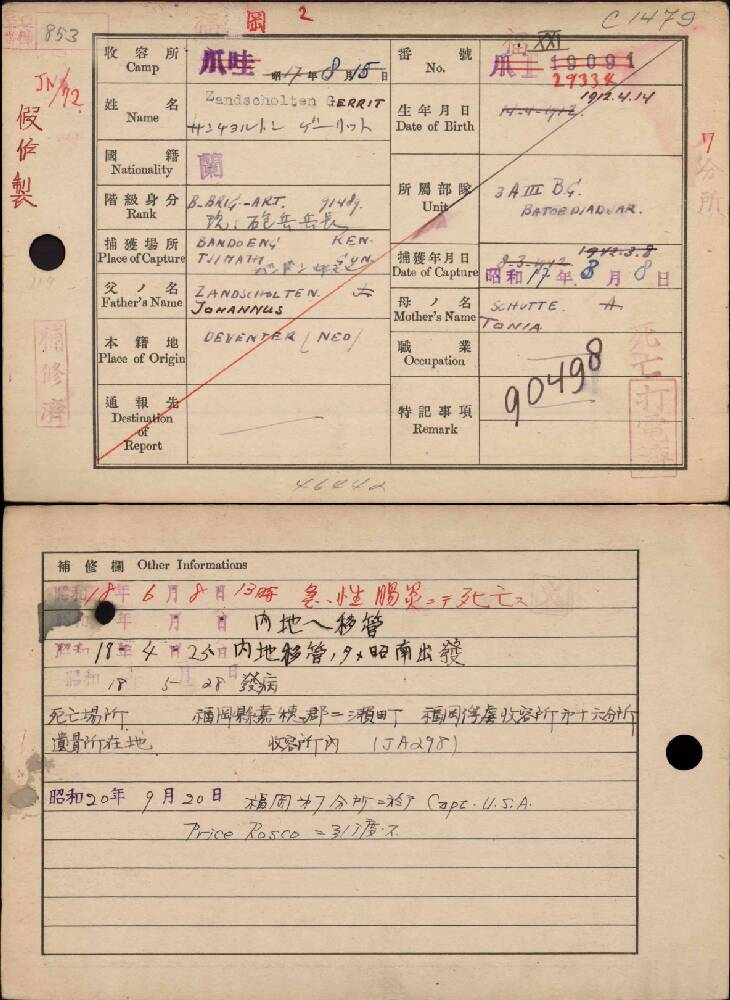 岡 2 C 1479
853
JN/72.
假俘製
收容所 Camp 爪哇 昭17年8月15日
番號 No. 福 XXI 爪 I 19091 29334
姓名 Name Zandscholten GERRIT
サンドスヨルトン ゲーリット
生年月日 Date of Birth 14-4-1912 1912.4.14
國籍 Nationality 蘭
階級身分 Rank B-BRIG-ART. 91489.
所屬部隊 Unit 3 A III BG.
BATOEDJADJAR.
捕獲場所 Place of Capture BANDOENG KEN-
TJIMAHI
捕獲年月日 Date of Capture 8-3-1942 1942.3.8
昭和17年3月8日
父ノ名 Father's Name ZANDSCHOLTEN.
JOHANNUS
母ノ名 Mother's Name SCHUTTE. A
TONIA
本籍地 Place of Origin DEVENTER (NED)
職業 Occupation
通報先 Destination of Report
特記事項 Remark 90498
7分所
補修濟
死亡打電濟
46442
補修欄 Other Informations
昭和18年6月8日13時 急性腸炎ニテ死亡ス
年月日 内地へ移管
昭和18年4月25日 内地移管ノタメ昭南出發
昭和18 5 28 發病
死亡場所 福岡縣嘉穂郡二瀬町 福岡俘虜收容所第十六分所
遺骨所在地 收容所内 (JA298)
昭和20年9月20日 福岡第7分所ニ於テ Capt. U.S.A.
Price Rosco ニ引渡ス